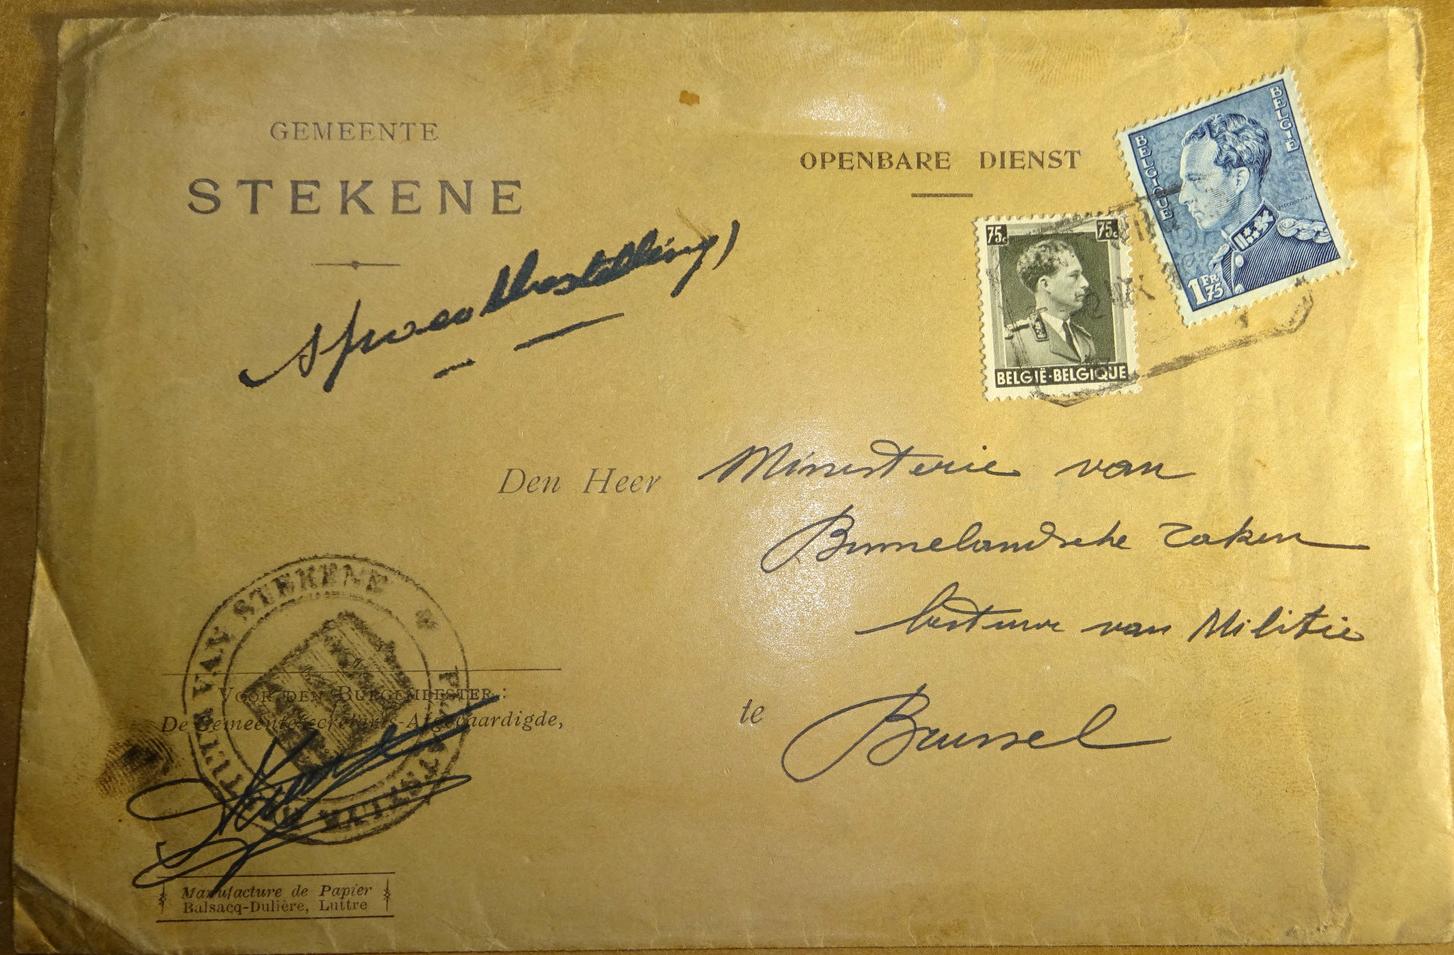 GEMEENTE
STEKENE
OPENBARE DIENST
spoedbestelling
BELGIQUE BELGIË
1 FR 75
75c 75c
BELGIË-BELGIQUE
Den Heer Ministerie van
Binnelandsche Zaken
bestuur van Militie
te Brussel
VAN STEKENE
VOOR DEN BURGEMEESTER:
De Gemeentesecretaris-Afgevaardigde,
Manufacture de Papier
Balsacq-Dulière, Luttre